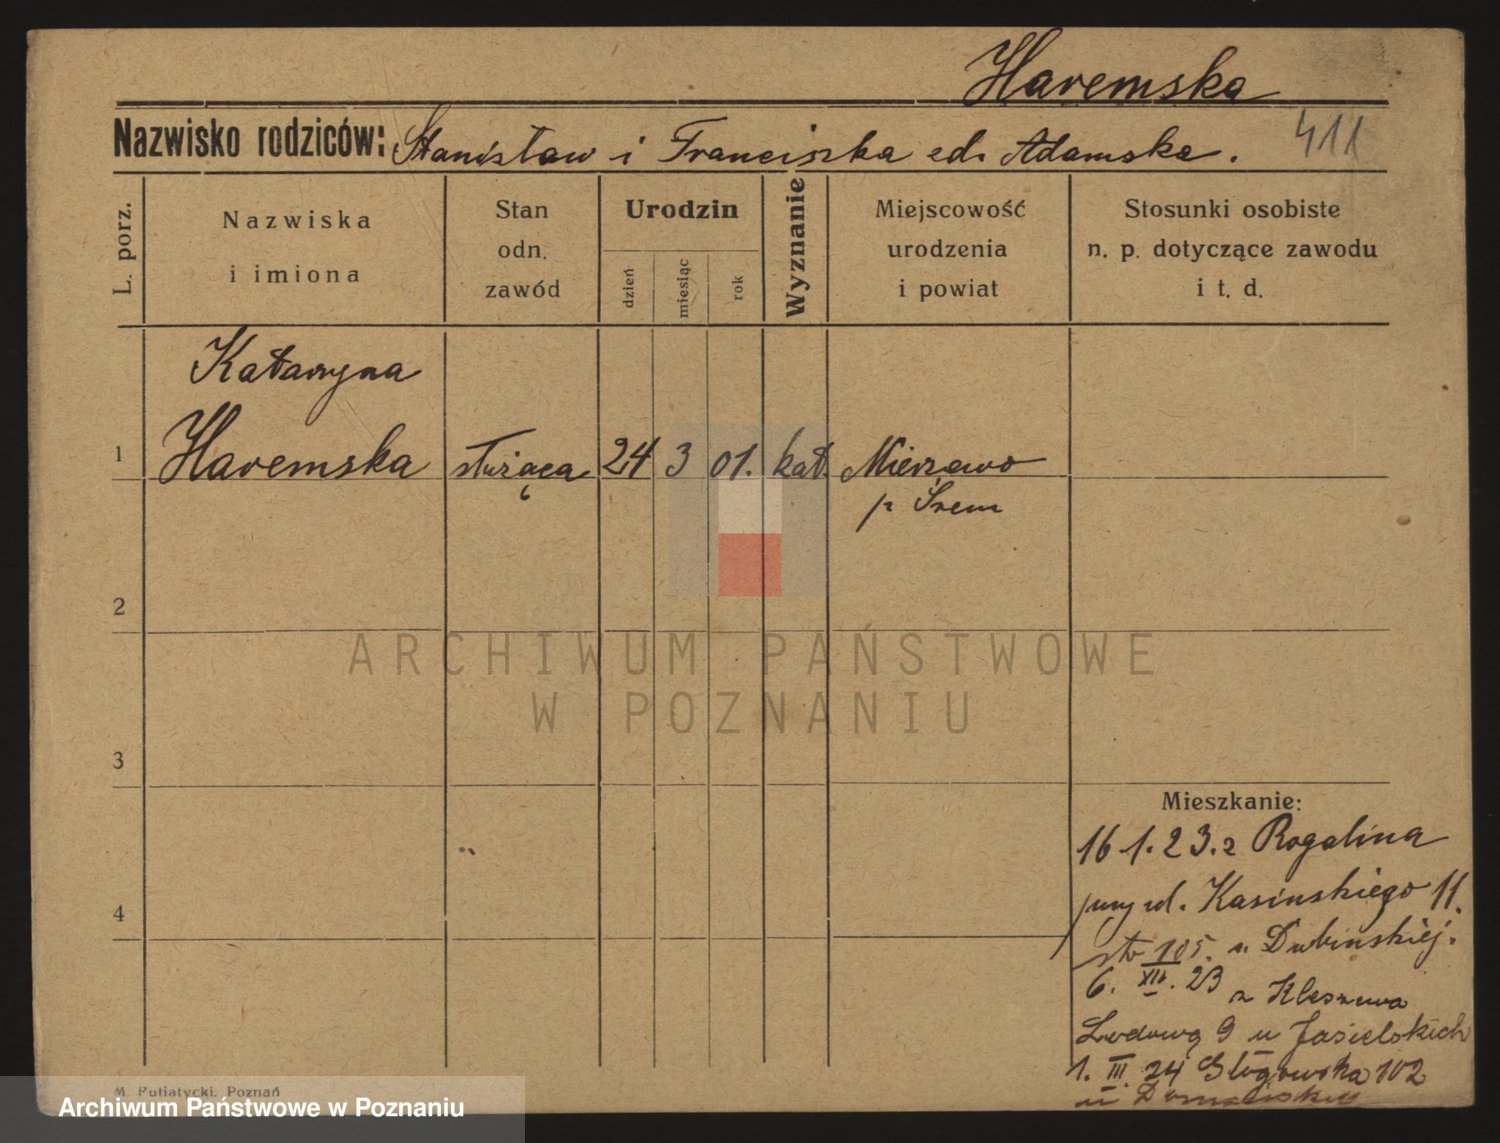 Haremska
Nazwisko rodziców: Stanisław i Franciszka ed. Adamska.
411
L. porz.
Nazwiska
i imiona
Stan
odn.
zawód
Urodzin
dzień
miesiąc
rok
Wyznanie
Miejscowość
urodzenia
i powiat
Stosunki osobiste
n. p. dotyczące zawodu
i t. d.
Katarzyna
1 Haremska służąca 24 3 01. kat.
p Śrem
2
3
4
Mieszkanie:
16 1. 23. z Rogalina
przy ul. Kasinskiego 11.
105. u Dubinskiej.
6. XII. 23 z Kleszewa
Ludową 9 u Jasielskich
1. III. 24 Głogowska 102
u
M. Putiatycki, Poznań
ARCHIWUM PAŃSTWOWE
W POZNANIU
Archiwum Państwowe w Poznaniu